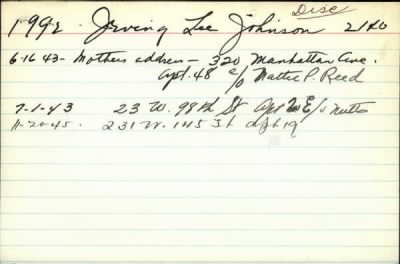 Disc
1992 Irving Lee Johnson 21
6-16 43 - Mothers address - 320 Manhattan Ave.
Apt. 48 c/o Mattie P. Reed
7-1-43 23 W. 98th St Apt E c/o
11-20-45. 231 W. 145 St Apt 19